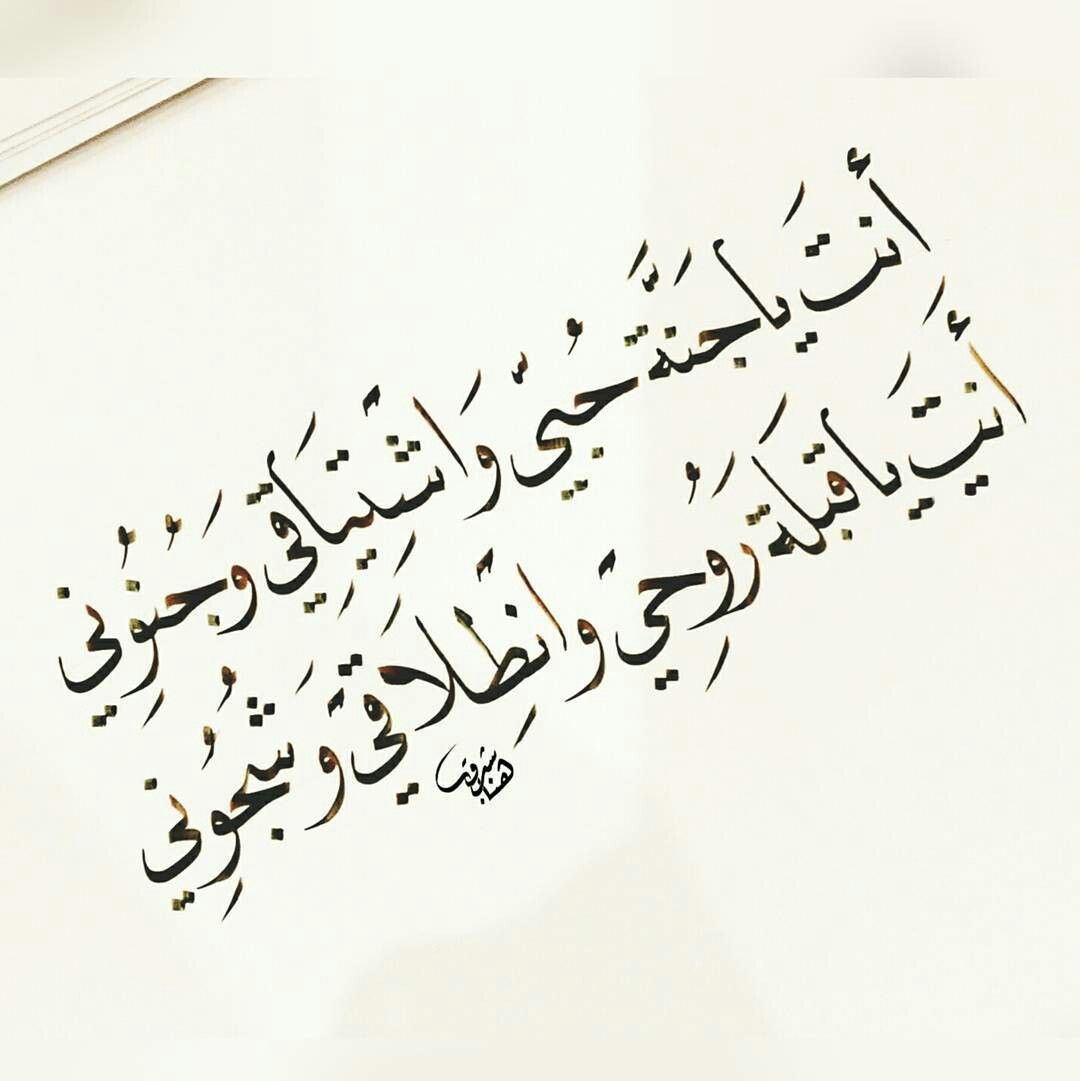 أَنتَ يَا جَنَّةَ حُبِّي وَاشْتِيَاقِي وَجُنُونِي
أَنتَ يَا قِبلَةَ رُوحِي وَانْطِلَاقِي وَشُجُونِي